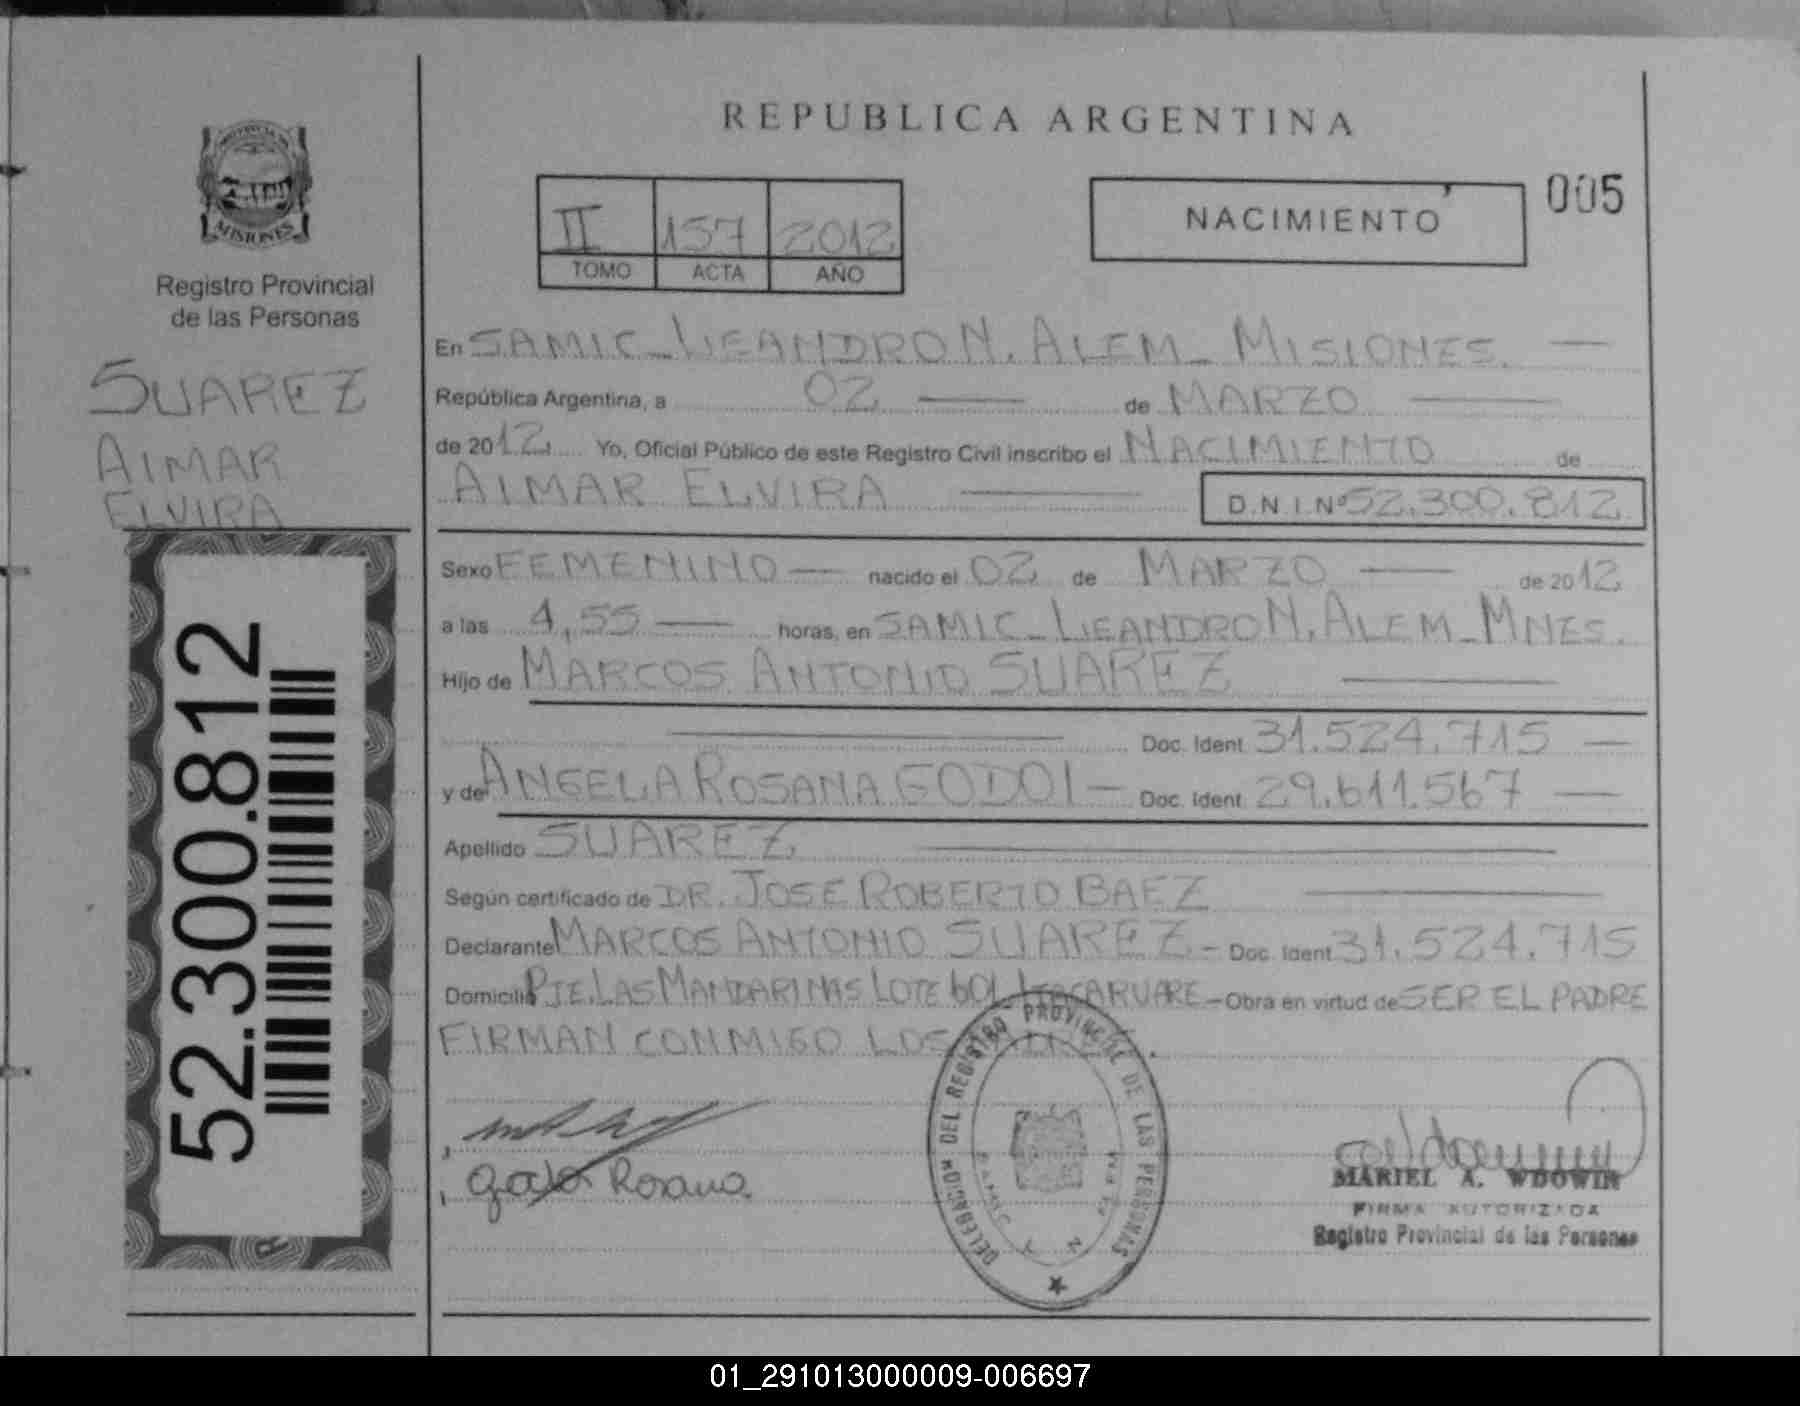 REPUBLICA ARGENTINA
PROVINCIA DE
MISIONES
Registro Provincial
de las Personas
SUAREZ
AIMAR
ELVIRA
52.300.812
II 157 2012
TOMO ACTA AÑO
NACIMIENTO
005
En SAMIC - LEANDRO N. ALEM - MISIONES. —
República Argentina, a 02 — de MARZO —
de 2012 Yo, Oficial Público de este Registro Civil inscribo el NACIMIENTO de
AIMAR ELVIRA — D.N.I.Nº 52.300.812
Sexo FEMENINO — nacido el 02 de MARZO — de 2012
a las 4,55 — horas, en SAMIC - LEANDRO N. ALEM - MNES.
Hijo de MARCOS ANTONIO SUAREZ —
— Doc. Ident 31.524.715 —
y de ANGELA ROSANA GODOI — Doc. Ident 29.611.567 —
Apellido SUAREZ —
Según certificado de DR. JOSE ROBERTO BAEZ —
Declarante MARCOS ANTONIO SUAREZ - Doc. Ident 31.524.715
Domicilio PJE. LAS MANDARINAS LOTE 601 ITACARUARE - Obra en virtud de SER EL PADRE
FIRMAN CONMIGO LOS
Rosana
DELEGACION DEL REGISTRO PROVINCIAL DE LAS PERSONAS
SAMIC L N ALEM
MARIEL A. WDOWIN
FIRMA AUTORIZADA
Registro Provincial de las Personas
01_291013000009-006697